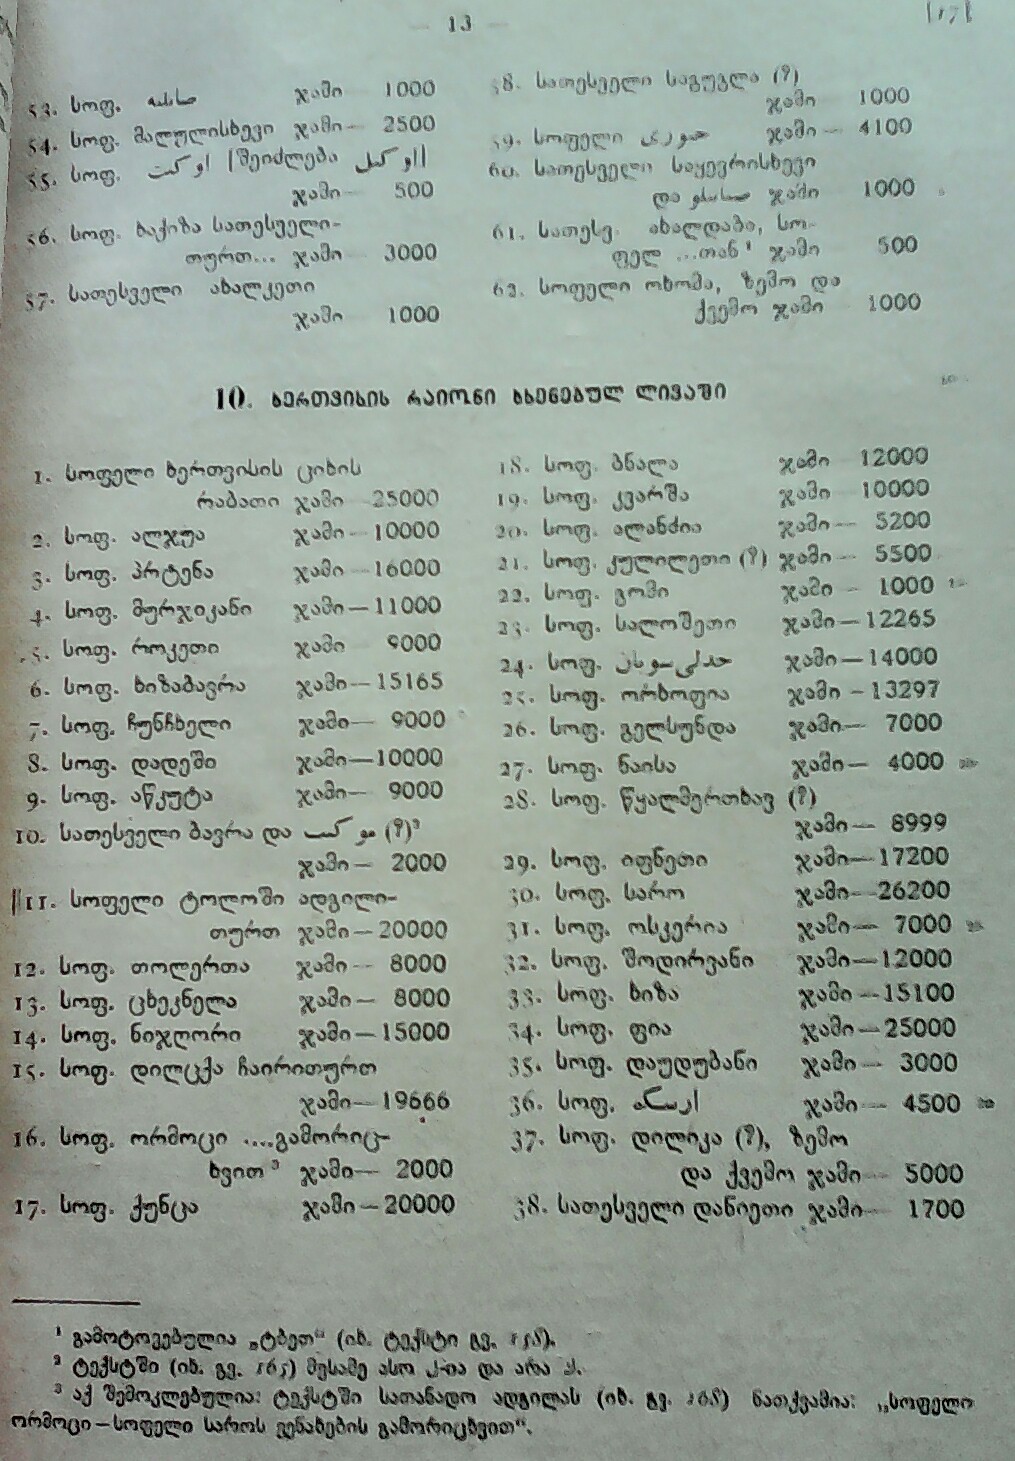 — 13 —
[17]
53. სოფ. ჯამი 1000
54. სოფ. მალულისხევი ჯამი — 2500
55. სოფ. اوكت [შეიძლება اوكيل]
ჯამი — 500
56. სოფ. ხაქიზა სათესველი-
თურთ... ჯამი — 3000
57. სათესველი ახალკეთი
ჯამი 1000
58. სათესველი საგუგლა (?)
ჯამი 1000
59. სოფელი ჯამი — 4100
60. სათესველი საყევრისხევი
და ჯამი 1000
61. სათესვ. ახალდაბა, სო-
ფელ ...თან¹ ჯამი 500
62. სოფელი ოხომა, ზემო და
ქვემო ჯამი 1000
10. ხერთვისის რაიონი ხსენებულ ლივაში
1. სოფელი ხერთვისის ციხის
რაბათი ჯამი — 25000
2. სოფ. ალჯუა ჯამი — 10000
3. სოფ. პრტენა ჯამი — 16000
4. სოფ. მურჯიკანი ჯამი — 11000
5. სოფ. როკეთი ჯამი 9000
6. სოფ. ხიზაბავრა ჯამი — 15165
7. სოფ. ჩუნჩხელი ჯამი — 9000
8. სოფ. დადეში ჯამი — 10000
9. სოფ. აწკუტა ჯამი — 9000
10. სათესველი ბავრა და (?)²
ჯამი — 2000
11. სოფელი ტოლოში ადგილი-
თურთ ჯამი — 20000
12. სოფ. თოლერთა ჯამი — 8000
13. სოფ. ცხეკნელა ჯამი — 8000
14. სოფ. ნიჯღორი ჯამი — 15000
15. სოფ. დილცქა ჩაირითურთ
ჯამი — 19666
16. სოფ. ორმოცი ....გამორიც-
ხვით³ ჯამი — 2000
17. სოფ. ქუნცა ჯამი — 20000
18. სოფ. ბნალა ჯამი 12000
19. სოფ. კვარშა ჯამი 10000
20. სოფ. ალანძია ჯამი — 5200
21. სოფ. კულილეთი (?) ჯამი — 5500
22. სოფ. გომი ჯამი — 1000
23. სოფ. სალოშეთი ჯამი — 12265
24. სოფ. ჯამი — 14000
25. სოფ. ორხოფია ჯამი — 13297
26. სოფ. გელსუნდა ჯამი — 7000
27. სოფ. ნაისა ჯამი — 4000
28. სოფ. წყალმერთხავ (?)
ჯამი — 8999
29. სოფ. იფნეთი ჯამი — 17200
30. სოფ. სარო ჯამი — 26200
31. სოფ. ოსკერია ჯამი — 7000
32. სოფ. შოდირვანი ჯამი — 12000
33. სოფ. ხიზა ჯამი — 15100
34. სოფ. ფია ჯამი — 25000
35. სოფ. დაუდუბანი ჯამი — 3000
36. სოფ. ჯამი — 4500
37. სოფ. დილიკა (?), ზემო
და ქვემო ჯამი — 5000
38. სათესველი დანიეთი ჯამი — 1700
¹ გამოტოვებულია „ტბეთ“ (იხ. ტექსტი გვ. 158).
² ტექსტში (იხ. გვ. 165) მესამე ასო
³ აქ შემოკლებულია: ტექსტში სათანადო ადგილას (იხ. გვ. 168) ნათქვამია: „სოფელი
ორმოცი — სოფელი საროს ვენახების გამორიცხვით“.